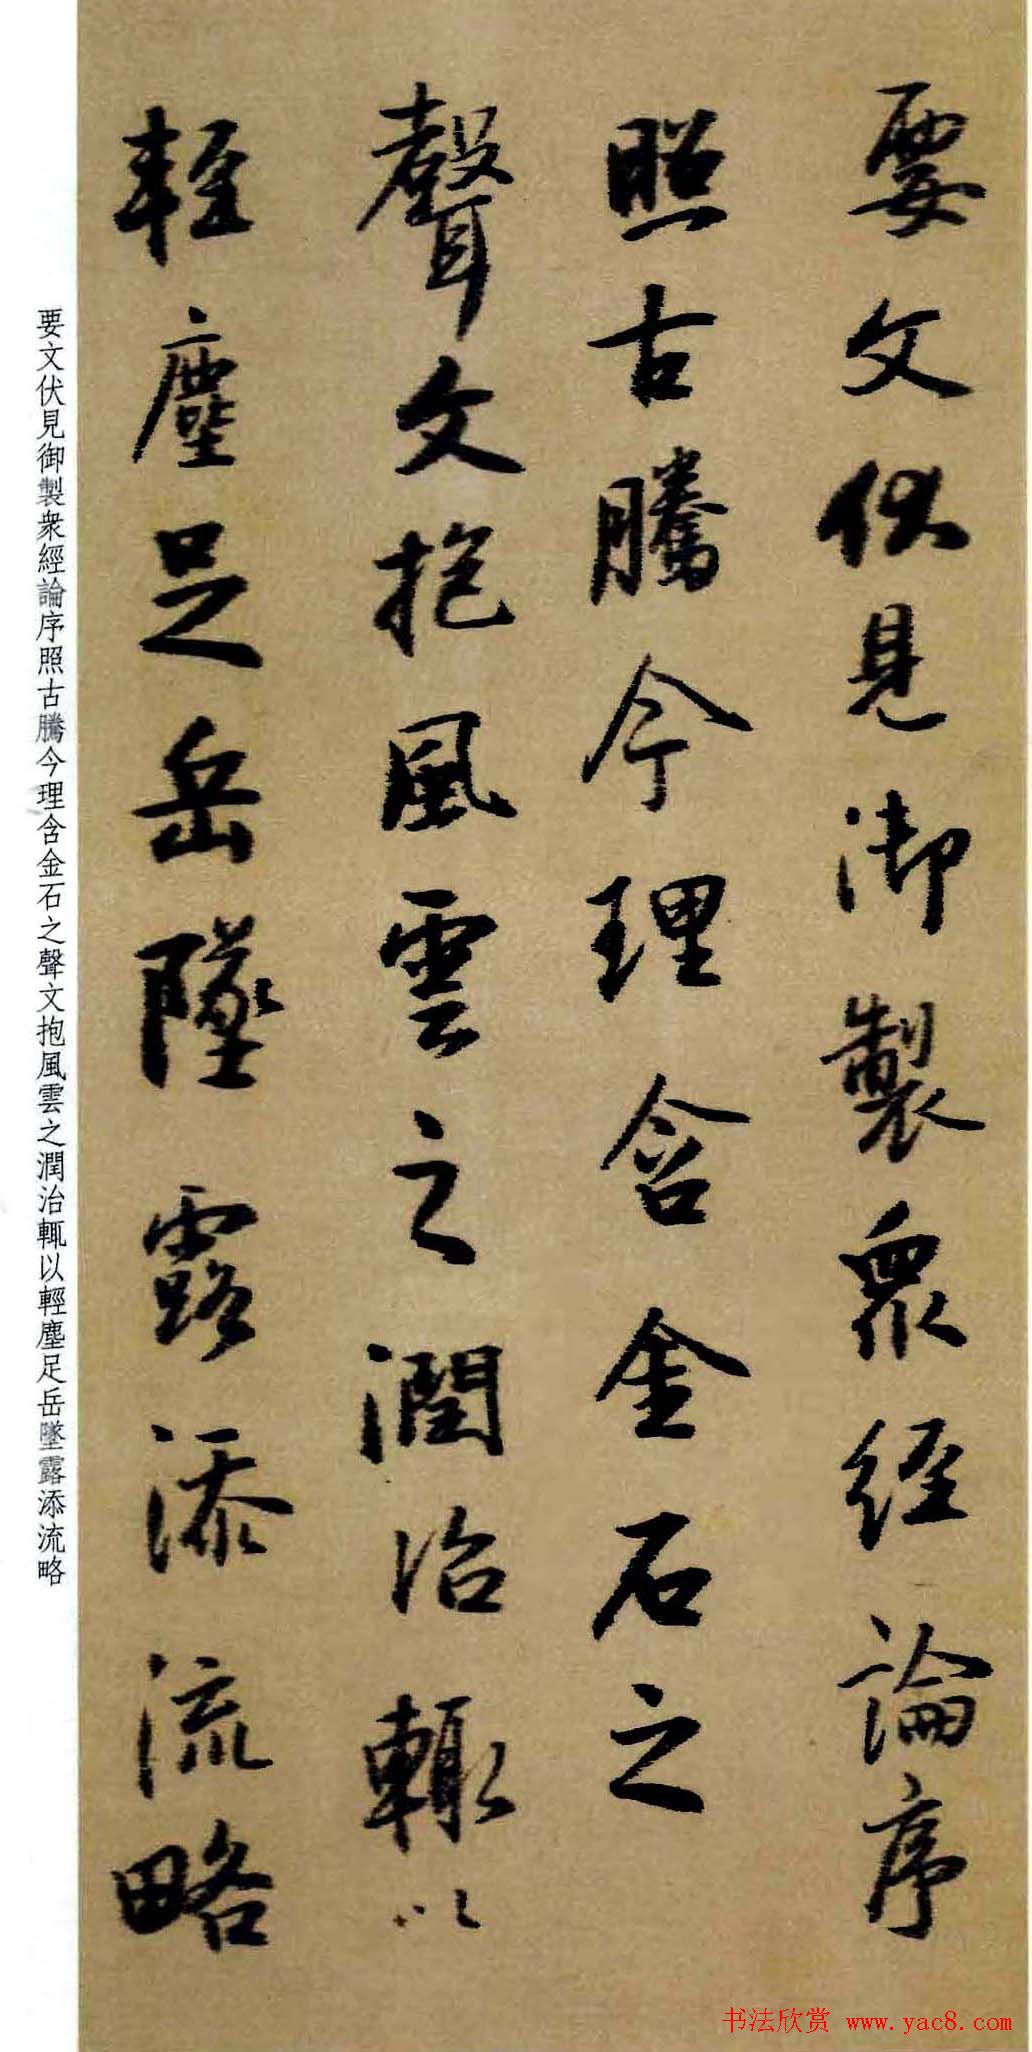 要文伏見御製衆經論序
照古騰今理含金石之
聲文抱風雲之潤治輒以
輕塵足岳墜露添流略
要文伏見御製衆經論序照古騰今理含金石之聲文抱風雲之潤治輒以輕塵足岳墜露添流略
书法欣赏 www.yac8.com